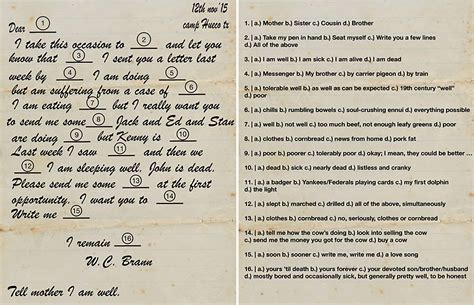 12th nov' 15
camp Hueco tx
Dear 1
I take this occasion to 2 and let you
know that 3 I sent you a letter last
week by 4 I am doing 5
but am suffering from a case of 6
I am eating 7 but I really want you
to send me some 8 Jack and Ed and Stan
are doing 9 but Kenny is 10
Last week I saw 11 and then we
12 I am sleeping well. John is dead.
Please send me some 13 at the first
opportunity. I want you to 14
Write me 15
I remain 16
W.C. Brann
Tell mother I am well.
1. | a.) Mother b.) Sister c.) Cousin d.) Brother
2. | a.) Take my pen in hand b.) Seat myself c.) Write you a few lines
d.) All of the above
3. | a.) I am well b.) I am sick c.) I am alive d.) I am dead
4. | a.) Messenger b.) My brother c.) by carrier pigeon d.) by train
5. | a.) tolerable well b.) as well as can be expected c.) 19th century "well"
d.) poor
6. | a.) chills b.) rumbling bowels c.) soul-crushing ennui d.) everything possible
7. | a.) well b.) not well c.) too much beef, not enough leafy greens d.) poor
8. | a.) clothes b.) cornbread c.) news from home d.) pork fat
9. | a.) poor b.) poorer c.) tolerably poor d.) okay; I mean, they could be better ...
10. | a.) dead b.) sick c.) nearly dead d.) listless and cranky
11. | a.) a badger b.) Yankees/Federals playing cards c.) my first dolphin
d.) the light
12. | a.) slept b.) marched c.) drilled d.) all of the above, simultaneously
13. | a.) clothes b.) cornbread c.) no, seriously, clothes or cornbread
14. | a.) tell me how the cow's doing b.) look into selling the cow
c.) send me the money you got for the cow d.) buy a cow
15. | a.) soon b.) sooner c.) write me not d.) write me a song
16. | a.) yours 'til death b.) yours forever c.) your devoted son/brother/husband
d.) mostly bored and occasionally sick, but generally pretty well, all things
considered